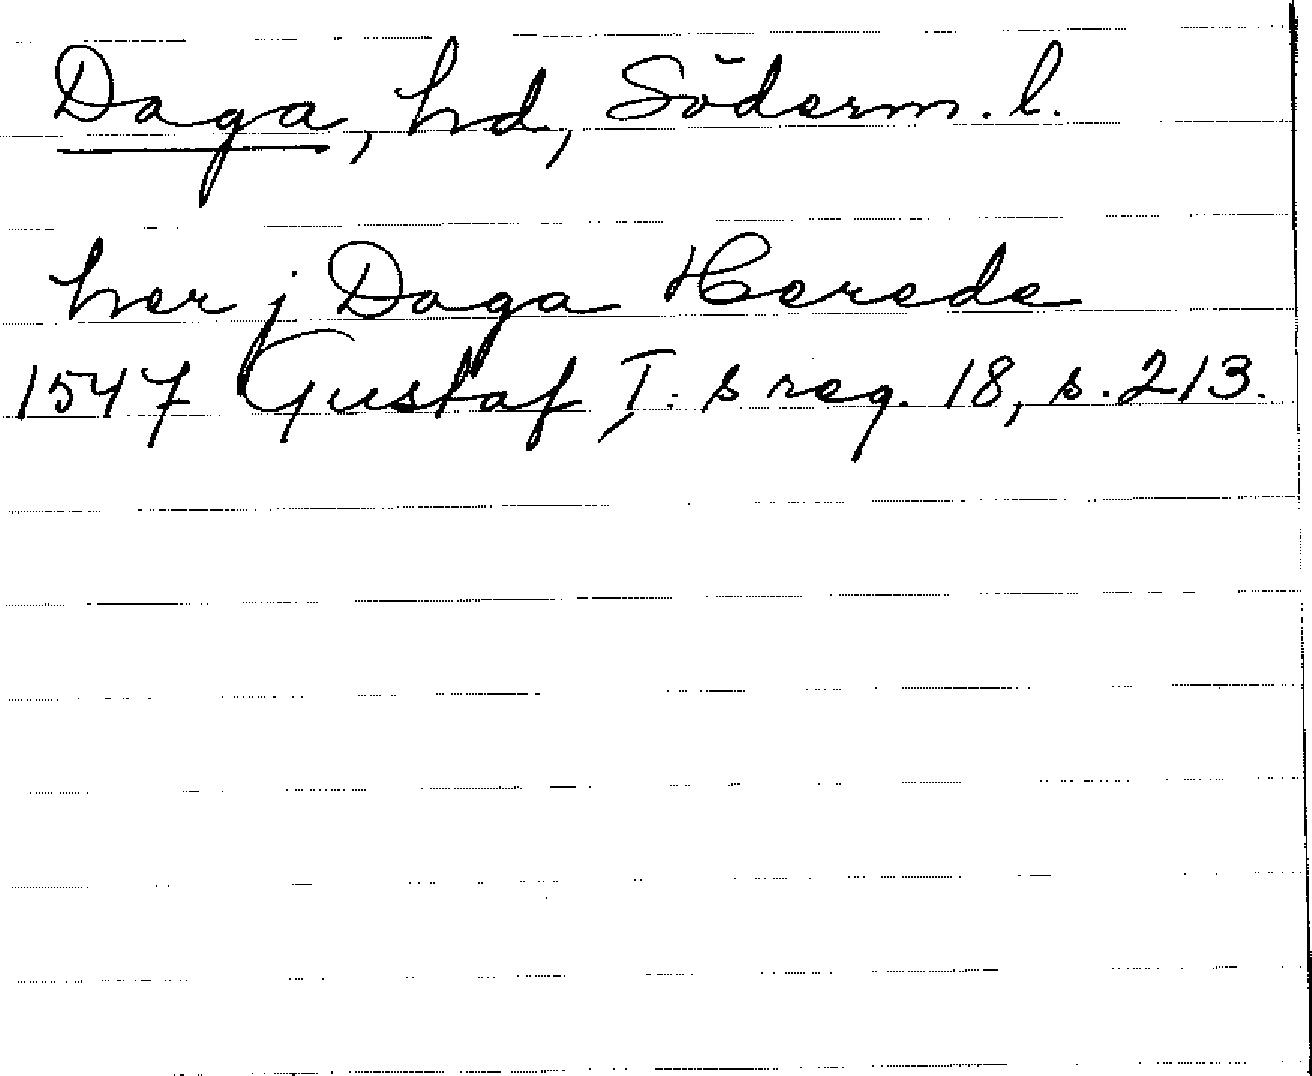 Daga, hd, Söderm. l.
her j Daga Herede
1547 Gustaf I:s reg. 18, s. 213.